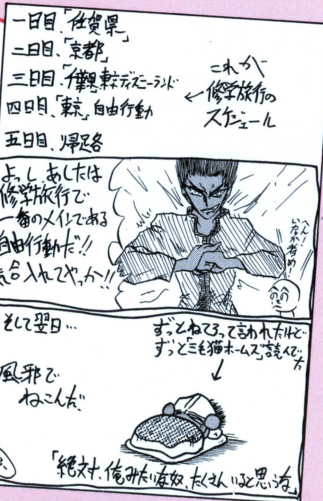 一日目、「佐賀県」
二日目、「京都」
三日目、「千葉県」東京ディズニーランド
四日目、「東京」自由行動
五日目、帰足各
これが
修学旅行の
スケジュール
よっし、あしたは
修学旅行で
一番のメインである
自由行動だ!!
気合入れてやっか〜!!
へへん!
いなか者め!
そして翌日…
風邪で
ねこんだ。
ずっとねてろって言われたけど
ずっと「三毛猫ホームズ」読んでた
「絶対、俺みたいな奴、たくさんいると思うな」